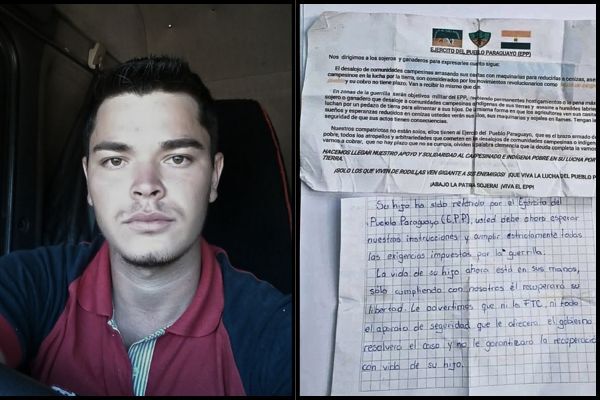 EJERCITO DEL PUEBLO PARAGUAYO (EPP)
Nos dirigimos a los sojeros y ganaderos para expresarles cuanto sigue:
El desalojo de comunidades campesinas arrasando sus casitas con maquinarias para reducirlas a cenizas, ase
campesinos en la lucha por la tierra, son considerados por los movimientos revolucionarios como
pueblo y su cobro no tiene plazo. Van a recibir lo mismo que dan
En zonas de la guerrilla serán objetivos militar del EPP, permanentes hostigamientos o la pena máx
sojero o ganadero que desaloje a comunidades campesinas indígenas de sus tierras y asesine a humildes labriegos
luchan por un pedazo de tierra para alimentar a sus hijos. De la misma forma en que los agricultores ven sus casitas
sueños y esperanzas reducidos en cenizas ustedes verán sus silos, sus maquinarias y sojales en llamas. Tengan la
seguridad de que sus actos tienen consecuencias.
Nuestros compatriotas no están solos, ellos tienen al Ejercito del Pueblo Paraguayo, que es el brazo armado de
pobre, todos los atropellos y arbitrariedades que cometen en desalojos de comunidades campesinas o indígen
vamos a cobrar, que no hay plazo que no se cumpla, olviden palabra clemencia que la deuda completa la vamos
HACEMOS LLEGAR NUESTRO APOYO Y SOLIDARIDAD AL CAMPESINADO E INDÍGENA POBRE EN SU LUCHA POR
TIERRA.
¡SOLO LOS QUE VIVEN DE RODILLAS VEN GIGANTE A SUS ENEMIGOS! ¡QUE VIVA LA LUCHA DEL PUEBLO P
¡ABAJO LA PATRIA SOJERA! ¡VIVA EL EPP!
Su hijo ha sido retenido por el Ejército del
Pueblo Paraguayo (E.P.P), usted debe ahora esperar
nuestras instrucciones y cumplir estrictamente todas
las exigencias impuestas por la guerrilla.
La vida de su hijo ahora está en sus manos,
sólo cumpliendo con nosotros él recuperará su
libertad. Le advertimos que ni la FTC, ni todo
el aparato de seguridad que le ofrecerá el gobierno
resolverá el caso y no le garantizará la recuperació
con vida de su hijo.